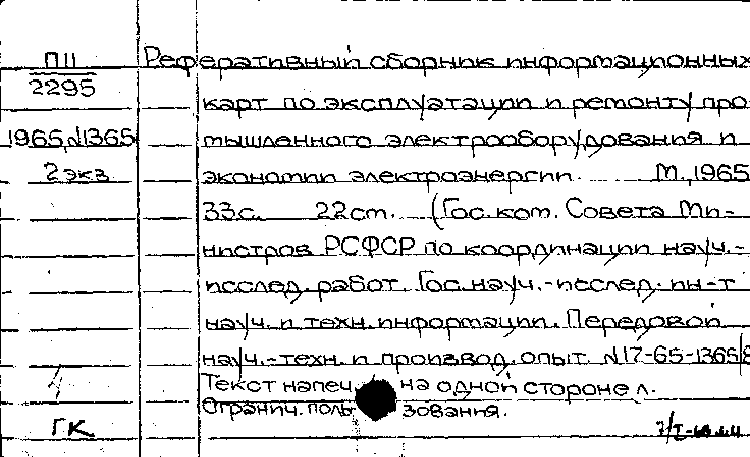 П11 Реферативный сборник информационных
2295 карт по эксплуатации и ремонту про
1965,№1365 мышленного электрооборудования и
2 экз экономии электроэнергии. М.,1965
33с. 22см. (Гос.ком. Совета Ми-
нистров РСФСР по координации науч.-
исслед.работ. Гос.науч.-исслед. ин-т
науч. и техн.информации. Передовой
науч.-техн. и производ.опыт №17-65-1365/8
Текст напеч. на одной стороне л.
Огранич.пользования.
ГК